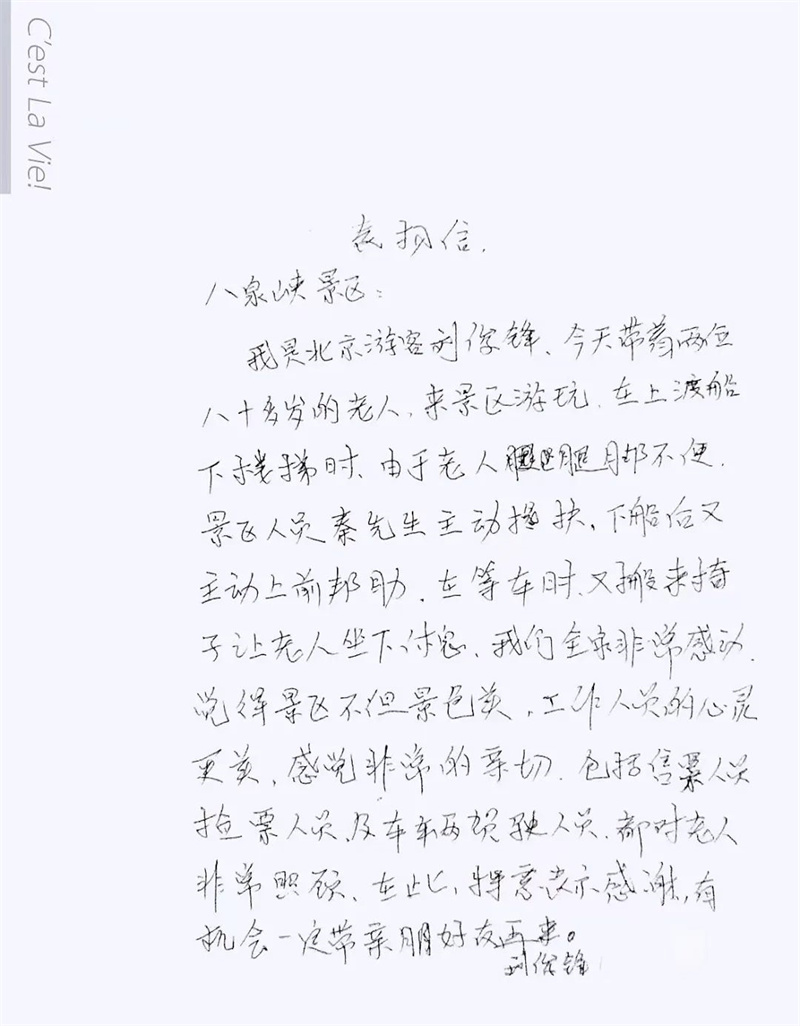 C'est La Vie!
表扬信.
八泉峡景区:
我是北京游客刘俊锋、今天带着两位
八十多岁的老人, 来景区游玩. 在上渡船
下楼梯时、由于老人腿脚不便.
景区人员秦先生主动搀扶、下船后又
主动上前邦助. 在等车时、又搬来椅
子让老人坐下休息、我们全家非常感动.
觉得景区不但景色美, 工作人员的心灵
更美、感觉非常的亲切. 包括售票人员
捡票人员及车车辆驾驶人员、都对老人
非常照顾、在此, 特意表示感谢, 有
机会一定带亲朋好友再来。
刘俊锋